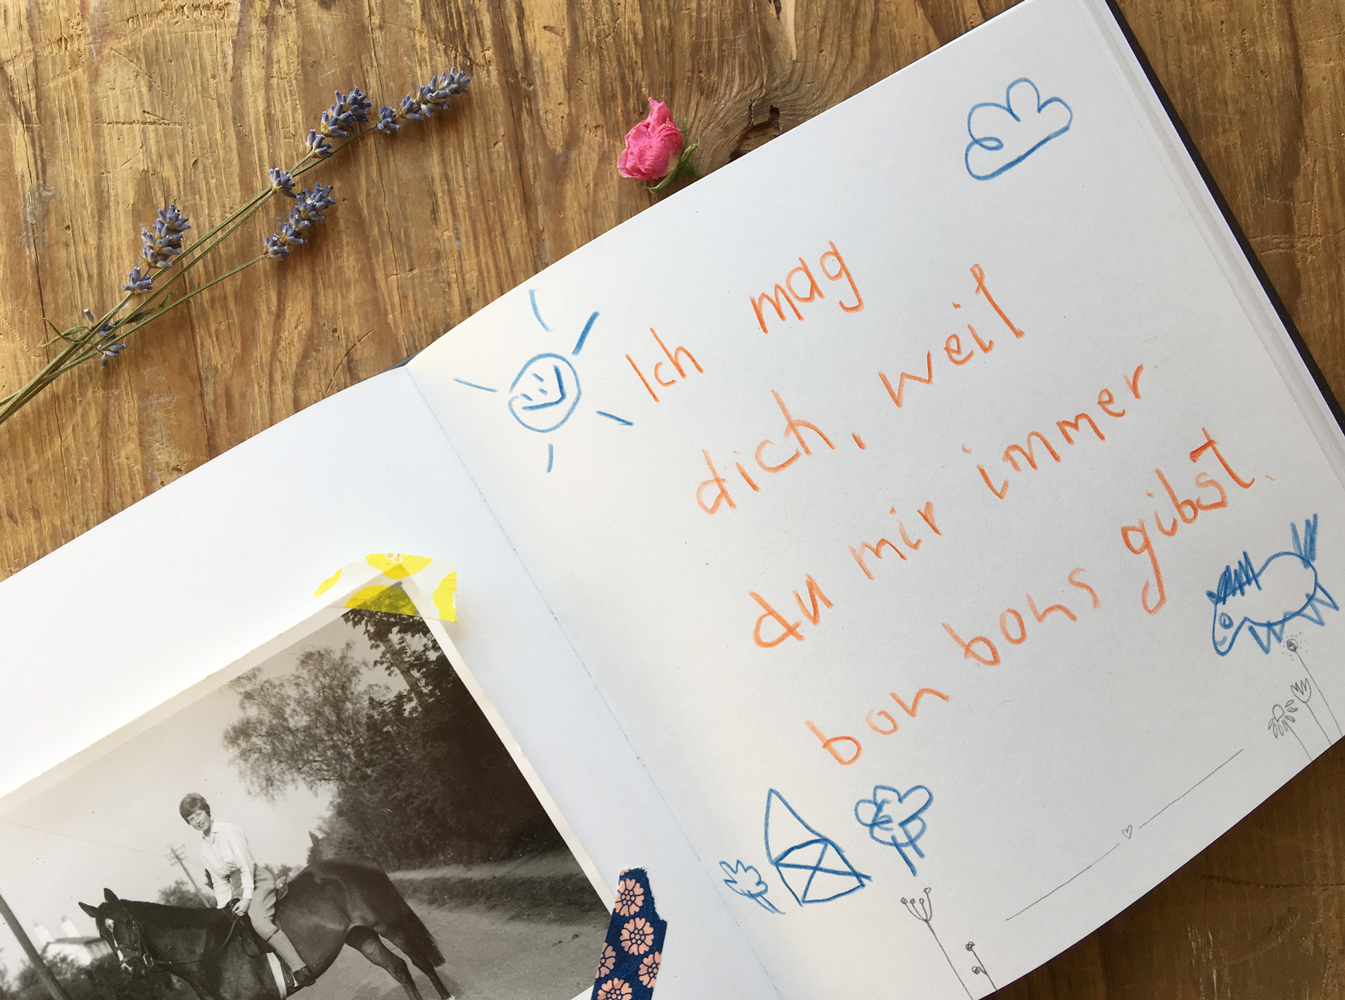 Ich mag
dich, weil
du mir immer
bon bons gibst.